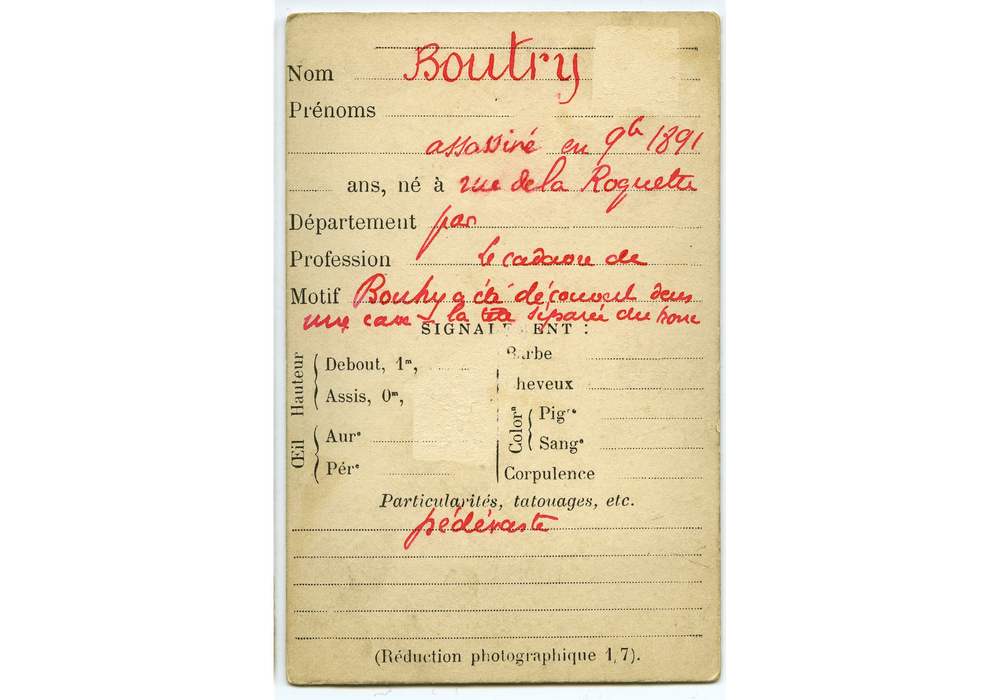 Nom Boutry
Prénoms
assassiné en 9b 1891
ans, né à rue de la Roquette
Département par
Profession le cadavre de
Motif Boutry a été découvert dans
une cave - la tête séparée du tronc
SIGNALEMENT :
Hauteur
Debout, 1m,
Assis, 0m,
Œil
Aure
Pére
Barbe
heveux
Colorn
Pigre
Sange
Corpulence
Particularités, tatouages, etc.
pédéraste
(Réduction photographique 1/7).